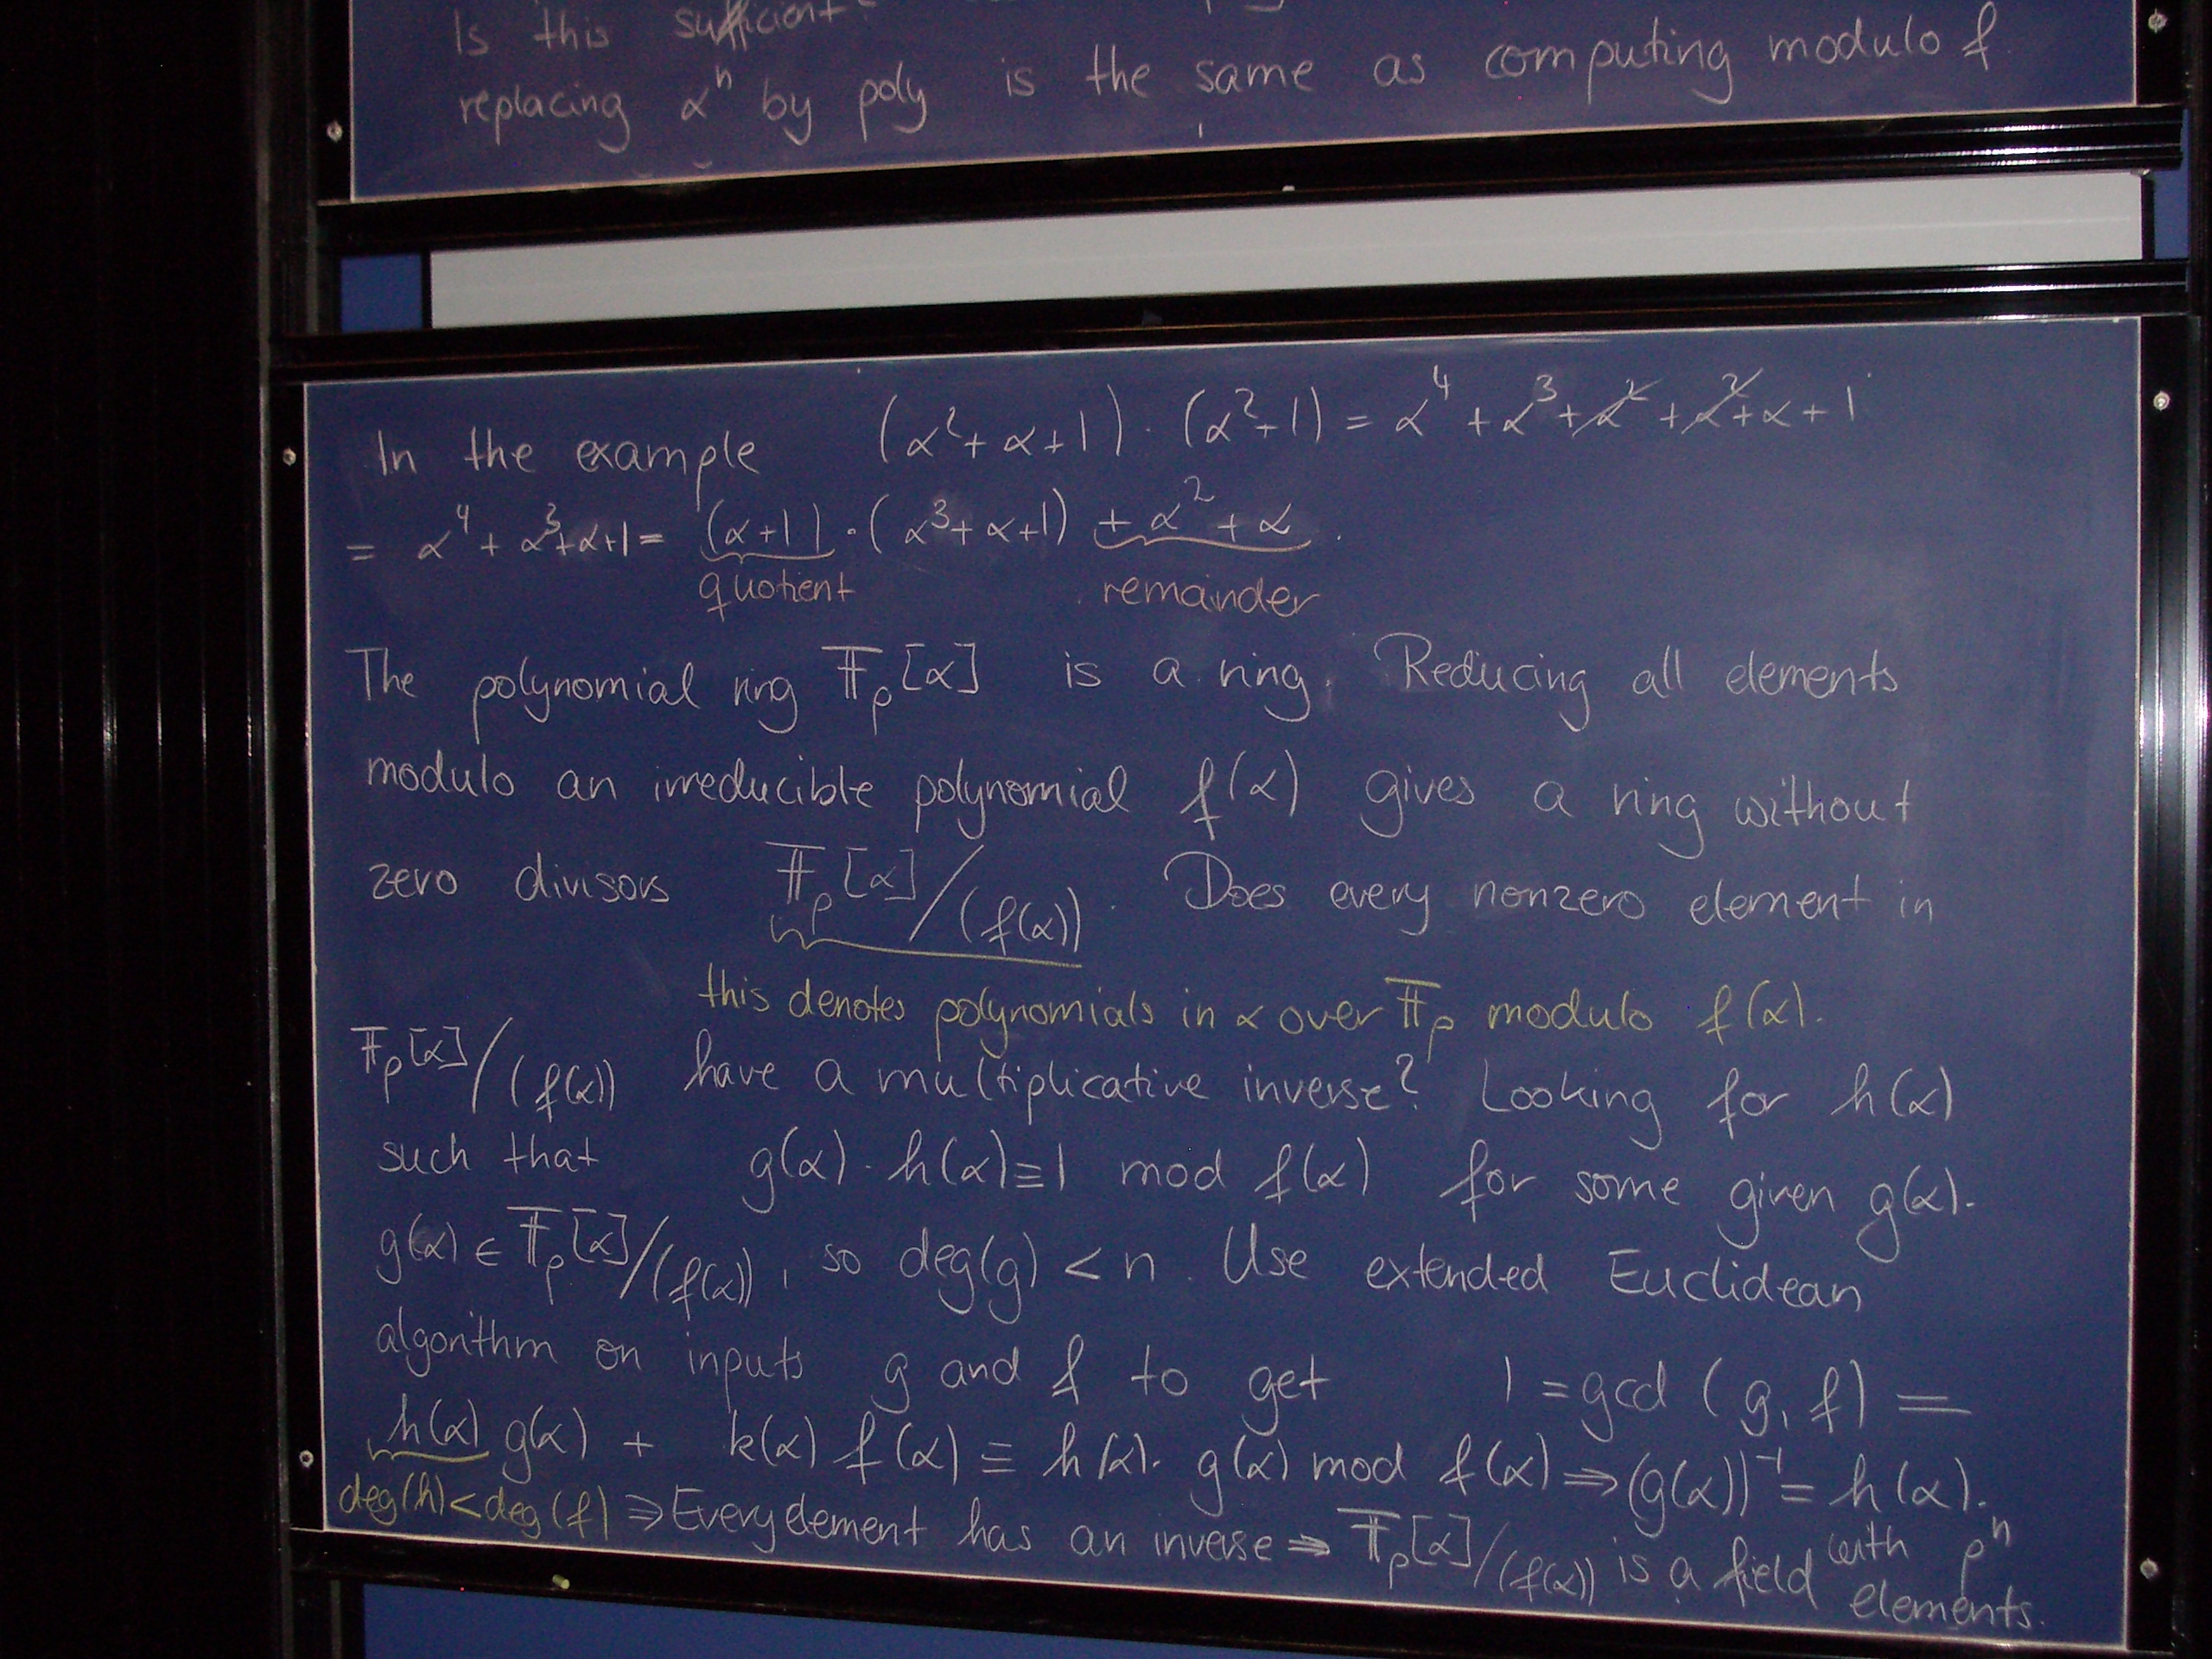 Is this sufficient?
replacing αⁿ by poly is the same as computing modulo f
In the example (α²+α+1)·(α²+1) = α⁴+α³+α²+α²+α+1
= α⁴+α³+α+1 = (α+1)·(α³+α+1) + α²+α.
quotient remainder
The polynomial ring 𝔽ₚ[α] is a ring. Reducing all elements
modulo an irreducible polynomial f(α) gives a ring without
zero divisors 𝔽ₚ[α]/(f(α)). Does every nonzero element in
this denotes polynomials in α over 𝔽ₚ modulo f(α).
𝔽ₚ[α]/(f(α)) have a multiplicative inverse? Looking for h(α)
such that g(α)·h(α)≡1 mod f(α) for some given g(α).
g(α) ∈ 𝔽ₚ[α]/(f(α)), so deg(g) < n. Use extended Euclidean
algorithm on inputs g and f to get 1 = gcd(g, f) =
h(α) g(α) + k(α) f(α) ≡ h(α)·g(α) mod f(α) ⇒ (g(α))⁻¹ = h(α).
deg(h)<deg(f) ⇒ Every element has an inverse ⇒ 𝔽ₚ[α]/(f(α)) is a field with pⁿ
elements.